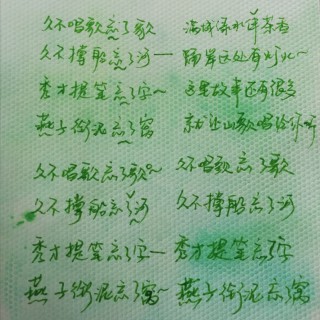 久不唱歌忘了歌 满城绿水茶香
久不撑船忘了河一 隔岸远处有灯火~
秀才提笔忘了字~ 这里故事还有很多
燕子衔泥忘了窝 就让山歌唱给你听
久不唱歌忘了歌~ 久不唱歌忘了歌
久不撑船忘了河 久不撑船忘了河
秀才提笔忘了字一 秀才提笔忘了字
燕子衔泥忘了窝~ 燕子衔泥忘了窝